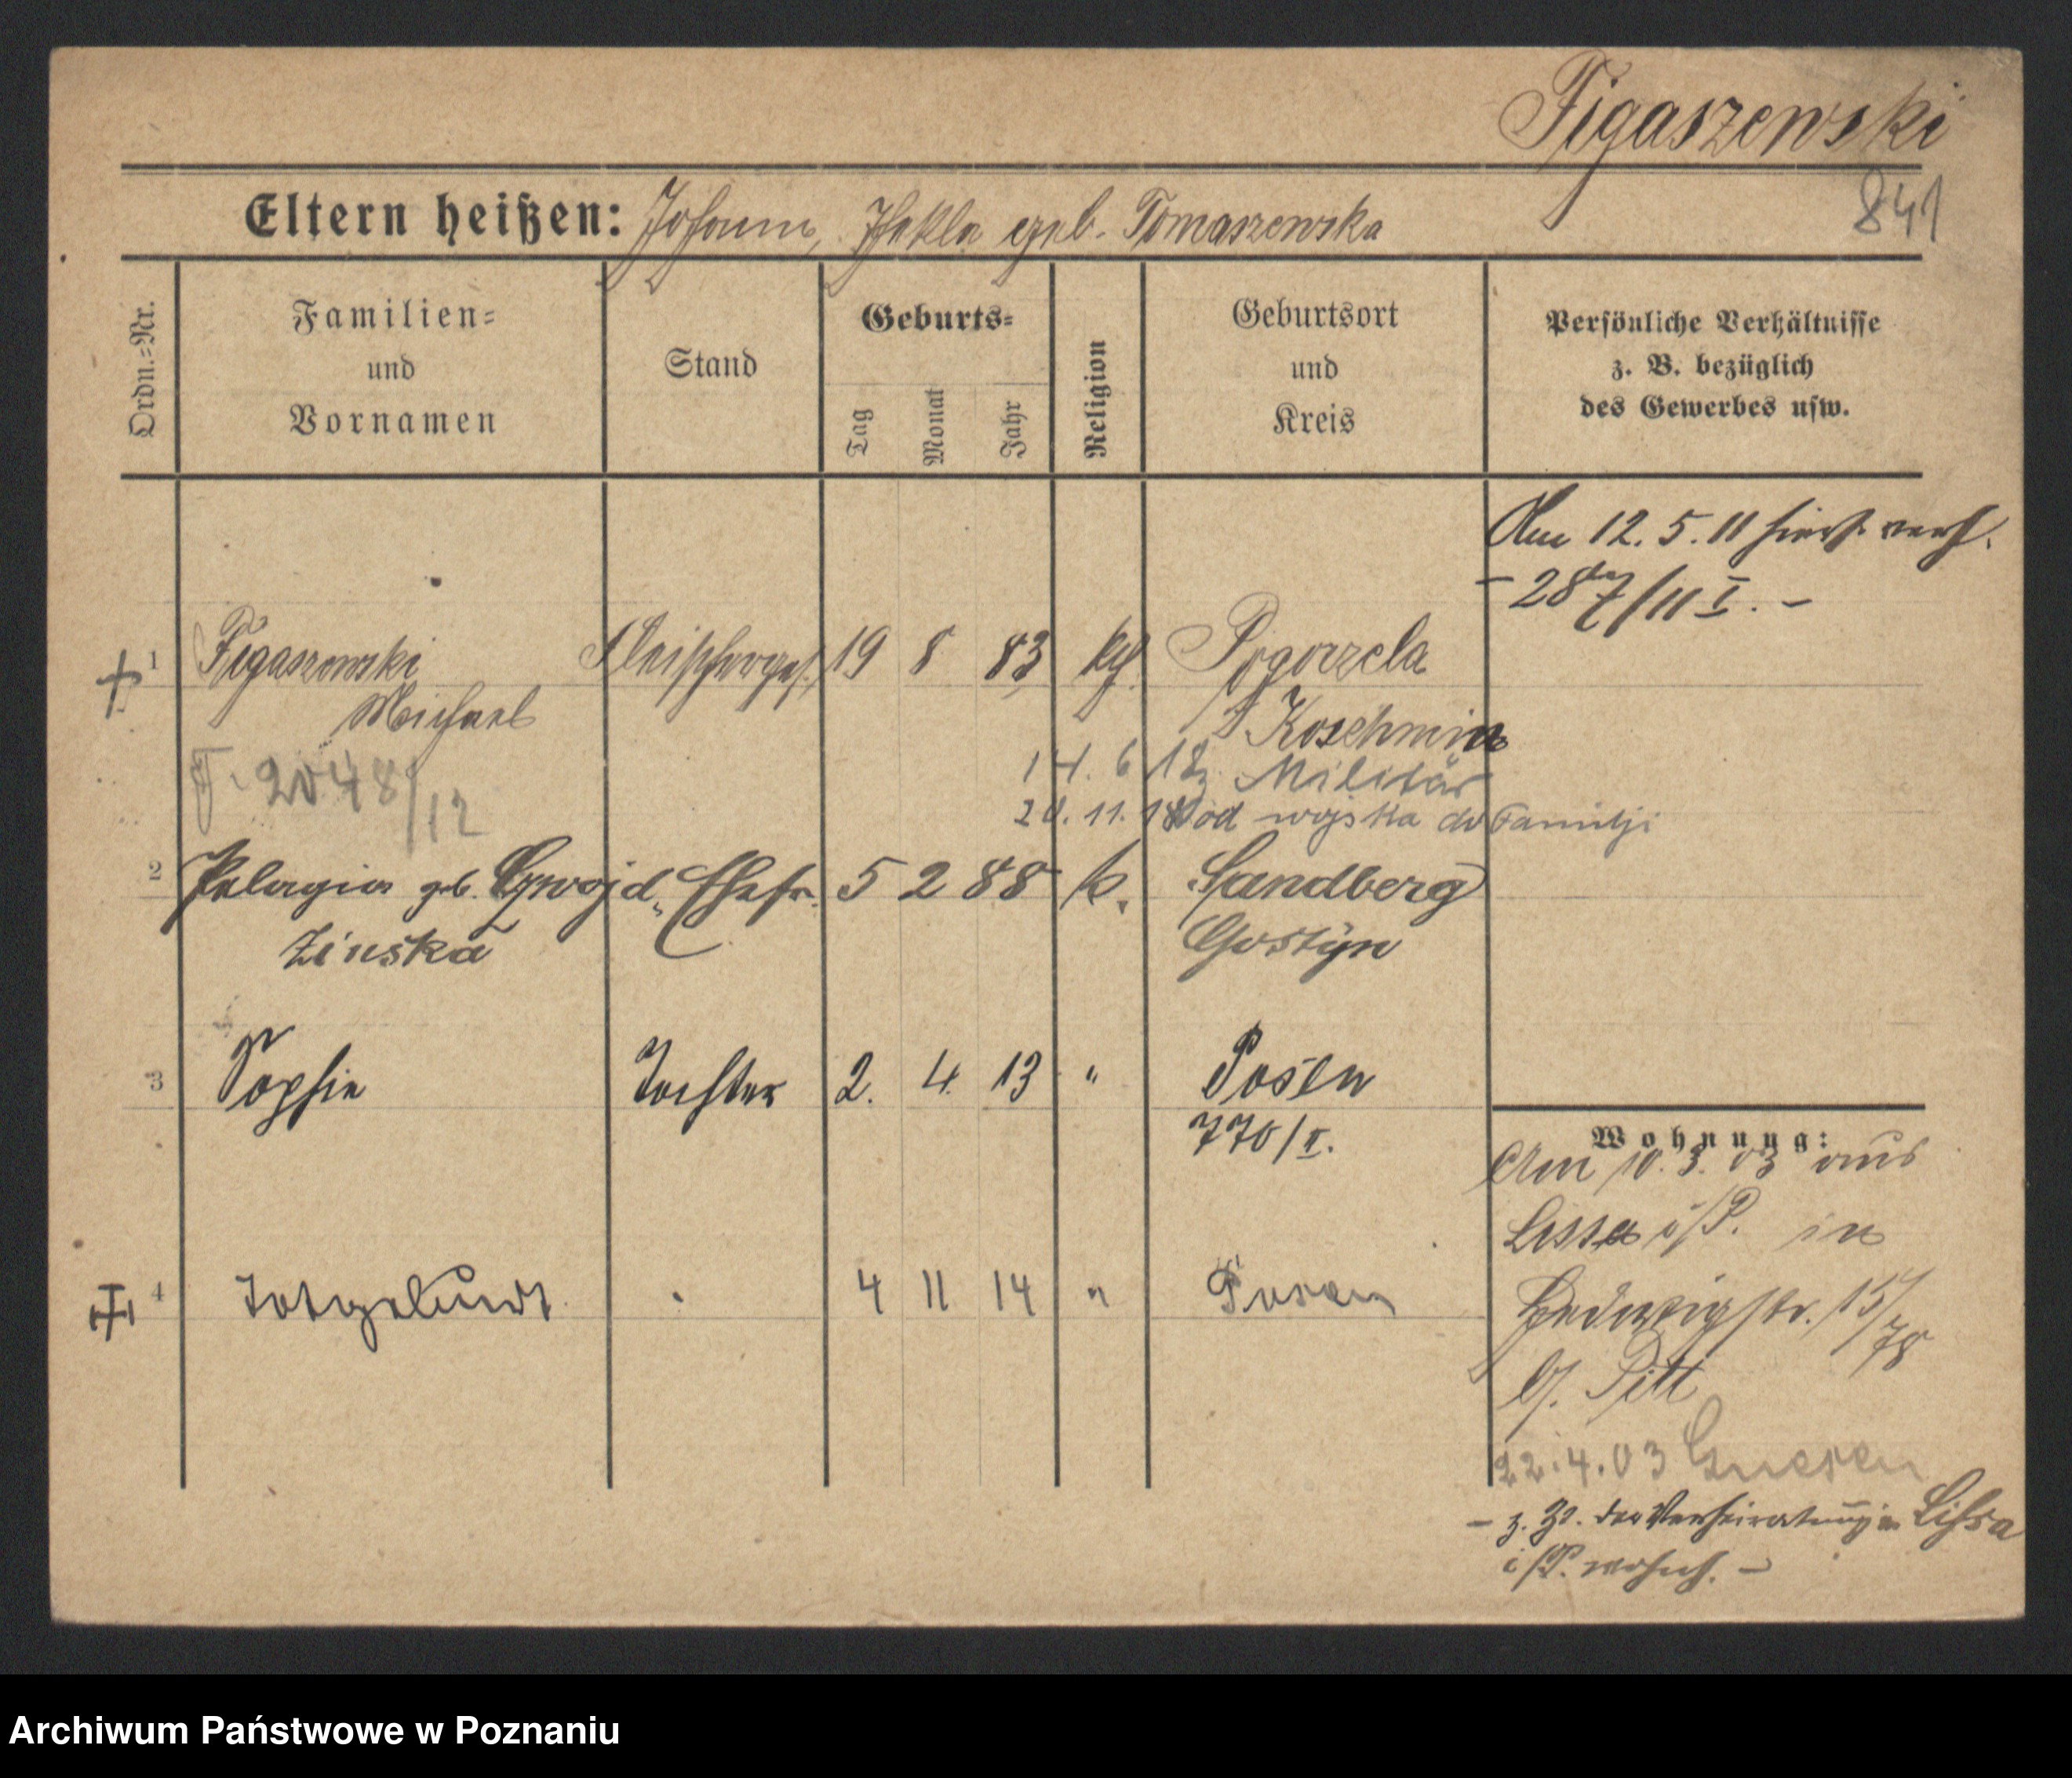 Figaszewski
841
Eltern heißen: Johann, Thekla geb. Tomaszewska
Ordn.=Nr.
Familien=
und
Vornamen
Stand
Geburts=
Tag
Monat
Jahr
Religion
Geburtsort
und
Kreis
Persönliche Verhältnisse
z. B. bezüglich
des Gewerbes usw.
Am 12.5.11 hier verh.
- 287/11 I. -
1 Figaszewski Fleischerges. 19 8 83 kth. Pogorzela
Michael
Koschmin
14. 6 18 z. Militär
F. 2048/12
20. 11. 18 od wojska do Familji
2 Pelagia geb. Gzwojd, Ehefr. 5 2 88 k. Sandberg
zinska
Gostyn
3 Sophie Tochter 2. 4. 13 " Posen
770/II.
Wohnung:
Am 10. 3. 03 aus
Lissa i/P. in
4 Totgeburt 4 11 14 " Posen
Hedwigstr. 15/78
b/. Pitt
22.4.03 Gnesen
- z. Zt. der Verheiratung in Lissa
i/P. wohnh. -
Archiwum Państwowe w Poznaniu